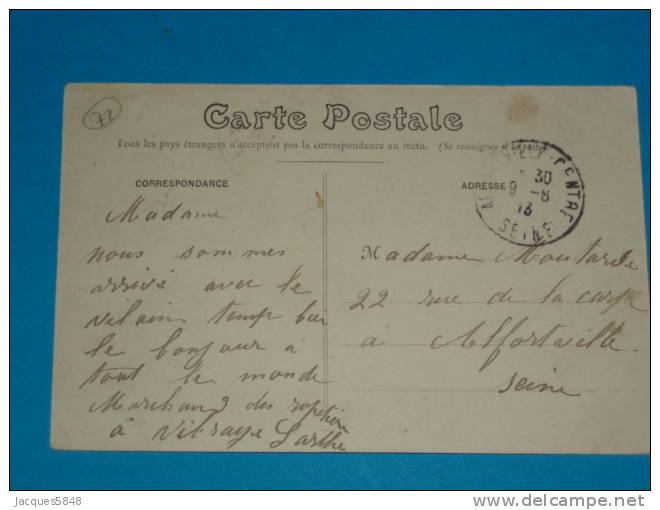 72
Carte Postale
Tous les pays étrangers n'acceptent pas la correspondance au recto. (Se renseigner à la poste)
CORRESPONDANCE
ADRESSE
CENTRE
30
9 - 8
13
SEINE
Madame
nous sommes
arrivé avec le
vilain temp
le bonjour a
tout le monde
Marchand des
à Vibraye Sarthe
Madame Moutarde
22 rue de la carpe
a Alfortville
Seine
Jacques5848
delcampe.net